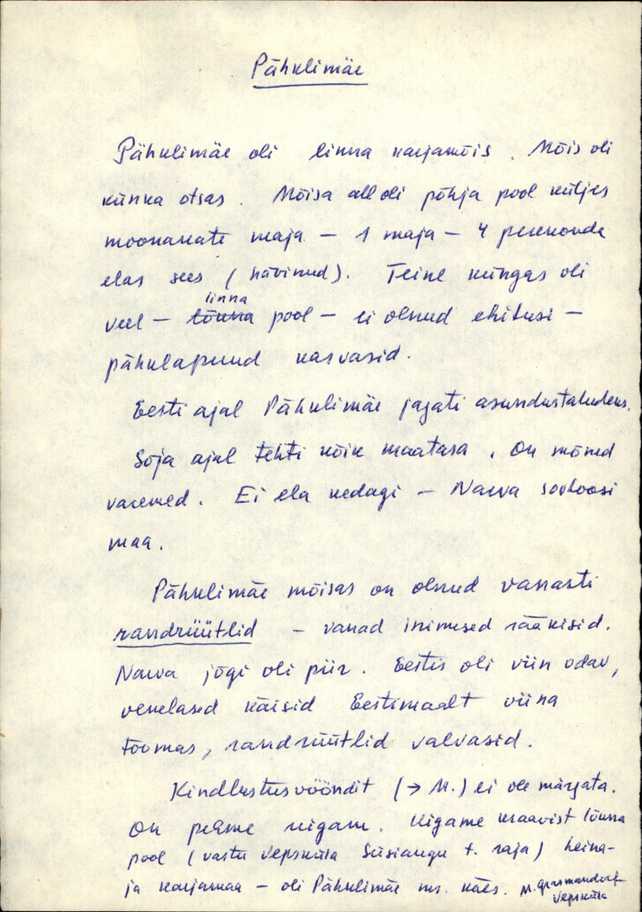 Pähklimäe
Pähklimäe oli linna karjamõis. Mõis oli
künka otsas. Mõisa all oli põhja pool küljes
moonakate maja – 1 maja – 4 perekonda
elas sees (hävinud). Teine küngas oli
linna
veel – lõuna pool – ei olnud ehitusi –
pähklapuud kasvasid.
Eesti ajal Pähklimäe jagati asundustaludeks.
Sõja ajal tehti kõik maatasa. On mõned
varemed. Ei ela kedagi – Narva sovhoosi
maa.
Pähklimäe mõisas on olnud vanasti
randrüütlid – vanad inimesed rääkisid.
Narva jõgi oli piir. Eestis oli viin odav,
venelased käisid Eestimaalt viina
toomas, randrüütlid valvasid.
Kindlustusvööndit (→ M.) ei ole märgata.
On peame nigam. kraavist lõuna
pool (vastu Vepsküla Süsiaugu t. raja) heina-
ja karjamaa – oli Pähklimäe ms. käes. M. Grosmandorf
Vepsküla